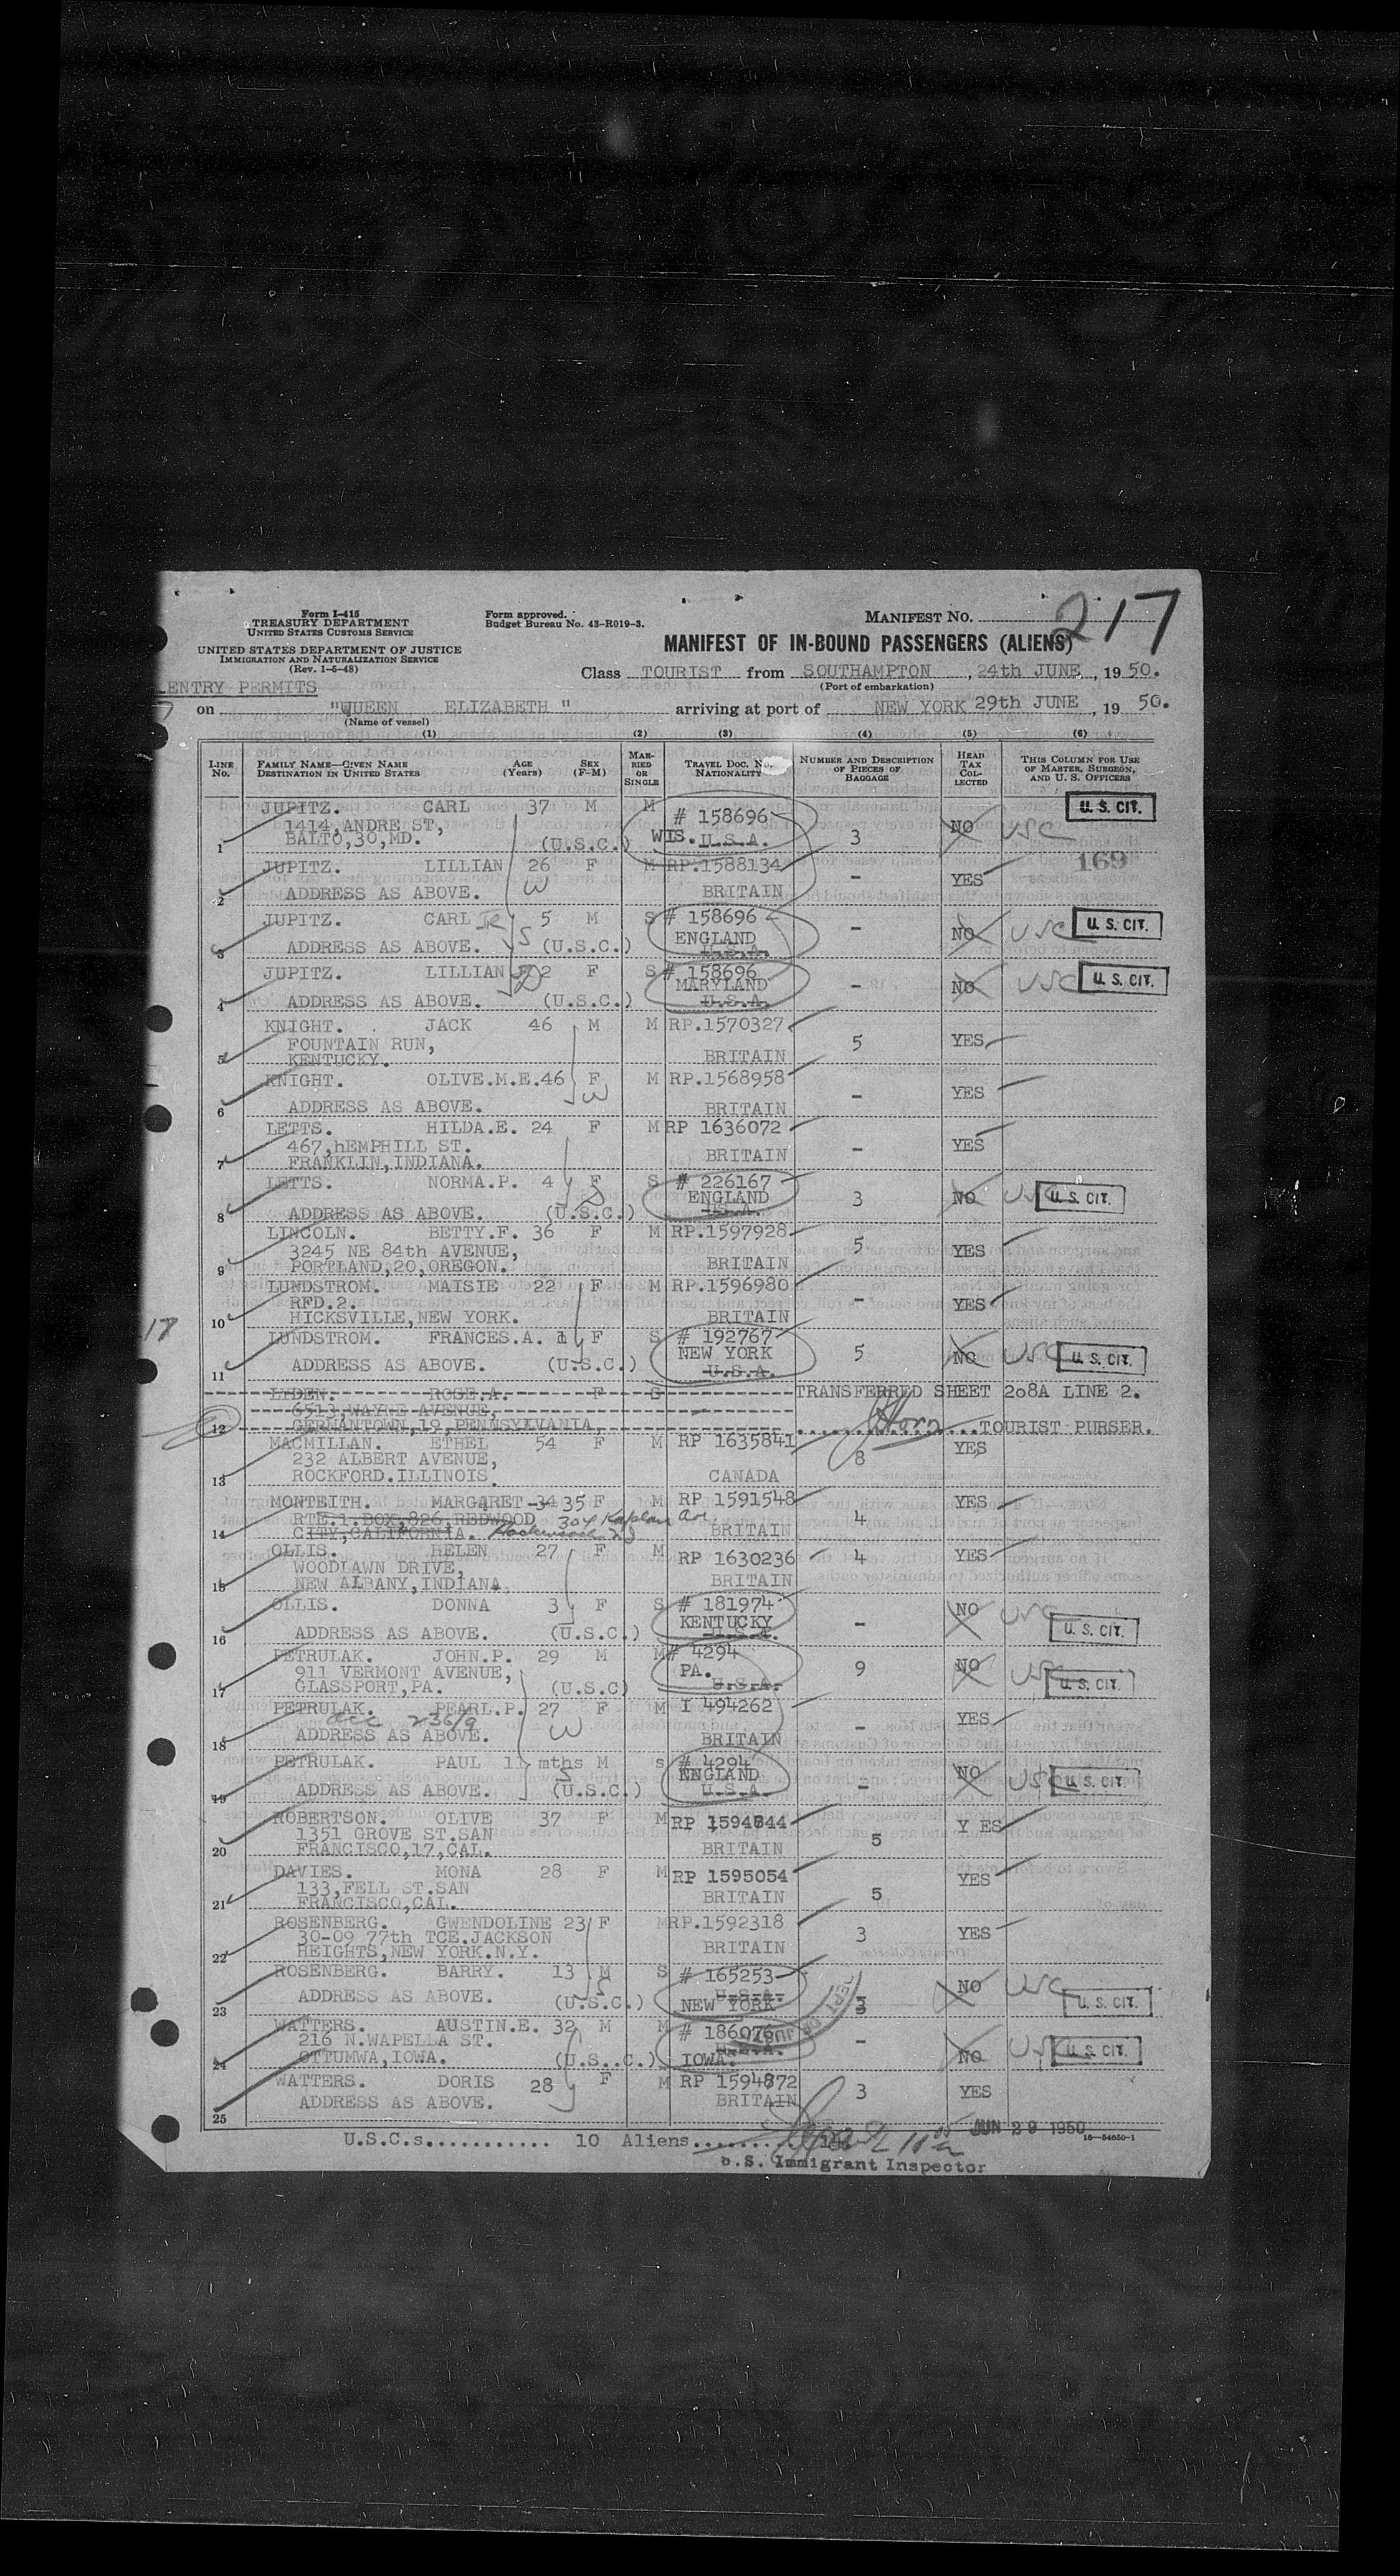 Form I-415
TREASURY DEPARTMENT
UNITED STATES CUSTOMS SERVICE
UNITED STATES DEPARTMENT OF JUSTICE
IMMIGRATION AND NATURALIZATION SERVICE
(Rev. 1-5-48)
Form approved.
Budget Bureau No. 43-R019-3.
MANIFEST NO. 217
MANIFEST OF IN-BOUND PASSENGERS (ALIENS)
Class TOURIST from SOUTHAMPTON, 24th JUNE, 1950.
(Port of embarkation)
ENTRY PERMITS
on "QUEEN ELIZABETH" arriving at port of NEW YORK 29th JUNE, 19 50.
(Name of vessel)
(1) (2) (3) (4) (5) (6)
LINE No. FAMILY NAME—GIVEN NAME DESTINATION IN UNITED STATES AGE (Years) SEX (F-M) MARRIED OR SINGLE TRAVEL DOC. No. NATIONALITY NUMBER AND DESCRIPTION OF PIECES OF BAGGAGE HEAD TAX COLLECTED THIS COLUMN FOR USE OF MASTER, SURGEON, AND U. S. OFFICERS
JUPITZ. CARL 37 M M # 158696 U. S. CIT.
1414, ANDRE ST, WIS. U.S.A. 3 NO USC
1 BALTO,30,MD. (U.S.C.)
169
JUPITZ. LILLIAN 26 F M RP.1588134 - YES
2 ADDRESS AS ABOVE. W BRITAIN
JUPITZ. CARL JR 5 M S # 158696 - NO USC U. S. CIT.
3 ADDRESS AS ABOVE. S (U.S.C.) ENGLAND U.S.A.
JUPITZ. LILLIAN 2 F S # 158696 - NO USC U. S. CIT.
4 ADDRESS AS ABOVE. D (U.S.C.) MARYLAND U.S.A.
KNIGHT. JACK 46 M M RP.1570327 5 YES
FOUNTAIN RUN,
5 KENTUCKY. BRITAIN
KNIGHT. OLIVE.M.E. 46 F M RP.1568958 - YES
6 ADDRESS AS ABOVE. W BRITAIN
LETTS. HILDA.E. 24 F M RP 1636072 - YES
467,hEMPHILL ST. BRITAIN
7 FRANKLIN,INDIANA.
LETTS. NORMA.P. 4 F S # 226167 3 NO USC U. S. CIT.
8 ADDRESS AS ABOVE. (U.S.C.) ENGLAND
LINCOLN. BETTY.F. 36 F M RP.1597928 5 YES
3245 NE 84th AVENUE,
9 PORTLAND,20,OREGON. BRITAIN
LUNDSTROM. MAISIE 22 F M RP.1596980 - YES
RFD.2.
10 HICKSVILLE,NEW YORK. BRITAIN
17
LUNDSTROM. FRANCES.A. 1 F S # 192767 5 NO USC U. S. CIT.
11 ADDRESS AS ABOVE. (U.S.C.) NEW YORK U.S.A.
LYDEN. ROSE.A. F S TRANSFERRED SHEET 208A LINE 2.
6513,WAYNE AVENUE,
12 GERMANTOWN,19,PENNSYLVANIA. TOURIST PURSER.
MACMILLAN. ETHEL 54 F M RP 1635841 8 YES
232 ALBERT AVENUE,
13 ROCKFORD.ILLINOIS. CANADA
MONTEITH. MARGARET 34 35 F M RP 1591548 4 YES
RTE.1.BOX,826,REDWOOD 304 Kaplan Ave.
14 CITY,CALIFORNIA. BRITAIN
OLLIS. HELEN 27 F M RP 1630236 4 YES
WOODLAWN DRIVE,
15 NEW ALBANY,INDIANA. BRITAIN
OLLIS. DONNA 3 F S # 181974 - NO USC U. S. CIT.
16 ADDRESS AS ABOVE. (U.S.C.) KENTUCKY U.S.A.
PETRULAK. JOHN.P. 29 M M # 4294 9 NO USC U. S. CIT.
911 VERMONT AVENUE, PA.
17 GLASSPORT,PA. (U.S.C) U.S.A.
PETRULAK. PEARL.P. 27 F M I 494262 - YES
18 ADDRESS AS ABOVE. W BRITAIN
PETRULAK. PAUL 11 mths M s # 4294 - NO USC U. S. CIT.
19 ADDRESS AS ABOVE. S (U.S.C.) ENGLAND U.S.A.
ROBERTSON. OLIVE 37 F M RP 1594844 5 Y ES
1351 GROVE ST.SAN
20 FRANCISCO,17,CAL. BRITAIN
DAVIES. MONA 28 F M RP 1595054 5 YES
133,FELL ST.SAN
21 FRANCISCO,CAL. BRITAIN
ROSENBERG. GWENDOLINE 23 F M RP.1592318 3 YES
30-09 77th TCE.JACKSON
22 HEIGHTS,NEW YORK.N.Y. BRITAIN
ROSENBERG. BARRY. 13 M S # 165253 3 NO USC U. S. CIT.
23 ADDRESS AS ABOVE. (U.S.C.) U.S.A. NEW YORK
WATTERS. AUSTIN.E. 32 M M # 186076 - NO USC U. S. CIT.
216 N.WAPELLA ST. U.S.A.
24 OTTUMWA,IOWA. (U.S..C.) IOWA.
WATTERS. DORIS 28 F M RP 1594872 3 YES
25 ADDRESS AS ABOVE. BRITAIN
U.S.C.s........... 10 Aliens........
JUN 29 1950
16—54650-1
U.S. Immigrant Inspector